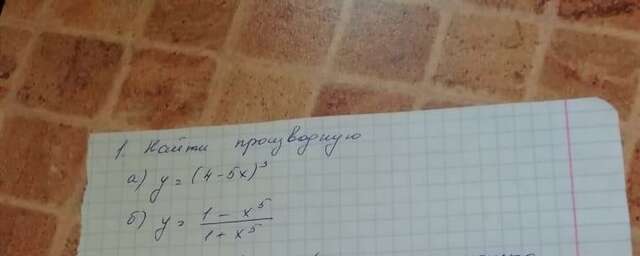 1. Найти производную
а) y = (4 - 5x)³
б) y = (1 - x⁵)/(1 + x⁵)